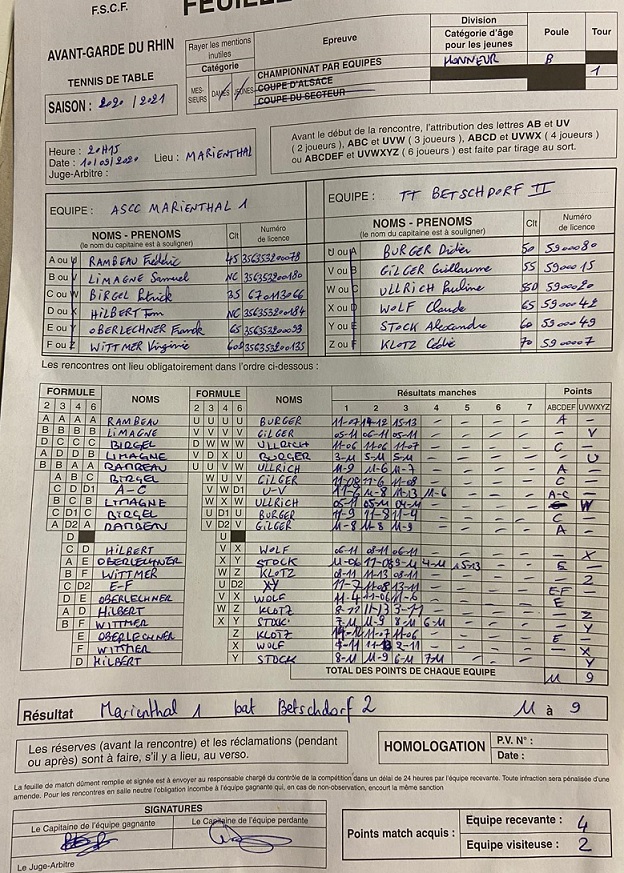 F.S.C.F.
AVANT-GARDE DU RHIN
TENNIS DE TABLE
SAISON : 2020 / 2021
Rayer les mentions inutiles
Catégorie
MES-SIEURS DAMES JEUNES
Epreuve
CHAMPIONNAT PAR EQUIPES
COUPE D'ALSACE
COUPE DU SECTEUR
Division
Catégorie d'âge pour les jeunes
Poule
Tour
HONNEUR B
1
Heure : 20H15
Date : 10/09/2020 Lieu : MARIENTHAL
Juge-Arbitre :
Avant le début de la rencontre, l'attribution des lettres AB et UV
( 2 joueurs ), ABC et UVW ( 3 joueurs ), ABCD et UVWX ( 4 joueurs )
ou ABCDEF et UVWXYZ ( 6 joueurs ) est faite par tirage au sort.
EQUIPE : ASCC MARIENTHAL 1
NOMS - PRENOMS
(le nom du capitaine est à souligner)
Clt
Numéro de licence
A ou RAMBEAU Frédéric 45
B ou LIMAGNE Samuel NC
C ou W BIRGEL Patrick 35
D ou HILBERT Tom NC
E ou OBERLECHNER Franck 65
F ou WITTMER Virginie
EQUIPE : TT BETSCHDORF II
NOMS - PRENOMS
(le nom du capitaine est à souligner)
Clt
Numéro de licence
U ou A BURGER Didier 50 5900080
V ou B GILGER Guillaume 55 5900015
W ou ULLRICH Pauline 5900020
X ou WOLF Claude 65 5900042
Y ou STOCK Alexandre 60 5900049
Z ou KLOTZ Cédric 70 5900007
Les rencontres ont lieu obligatoirement dans l'ordre ci-dessous :
FORMULE NOMS FORMULE NOMS Résultats manches Points
2 3 4 6 2 3 4 6 1 2 3 4 5 6 7 ABCDEF UVWXYZ
A A A A RAMBEAU U U U U BURGER 15-13 A
B B B B LIMAGNE V V V V GILGER 05-11 06-11 05-11 V
D C C C BIRGEL D W W W ULLRICH 11-06 11-06 11-07 C
A D D B LIMAGNE V D X U BURGER U
B B A A RAMBEAU U U V W ULLRICH 11-9 11-6 11-7 A
A B C BIRGEL W U V GILGER 11-08 11-6 11-08 C
C D D1 A-C V W D1 U-V 11-6 11-13 11-6 A-C
B C B LIMAGNE W X W ULLRICH W
C D1 C BIRGEL U D1 U BURGER C
A D2 A RAMBEAU V D2 V GILGER 11-8 11-8 11-9 A
D U
C D HILBERT V X WOLF 06-11 08-11 06-11 X
A E OBERLECHNER X Y STOCK 15-13 E
B F WITTMER W Z KLOTZ 08-11 11-13 08-11 Z
C D2 E-F U D2 XY 11-7 11-08 13-11 EF
D E OBERLECHNER V X WOLF 11-4 11-06 11-6 E
A D HILBERT W Z KLOTZ 8-12 11-13 3-11 Z
B F WITTMER X Y STOCK 7-11 11-9 8-11 6-11 Y
E OBERLECHNER Z KLOTZ 11-07 11-06 E
F WITTMER X WOLF 2-11 X
D HILBERT Y STOCK 8-11 11-9 6-11 7-11 Y
TOTAL DES POINTS DE CHAQUE EQUIPE 11 9
Résultat Marienthal 1 bat Betschdorf 2 11 à 9
Les réserves (avant la rencontre) et les réclamations (pendant
ou après) sont à faire, s'il y a lieu, au verso.
HOMOLOGATION
P.V. N° :
Date :
La feuille de match dûment remplie et signée est à envoyer au responsable chargé du contrôle de la compétition dans un délai de 24 heures par l'équipe recevante. Toute infraction sera pénalisée d'une
amende. Pour les rencontres en salle neutre l'obligation incombe à l'équipe gagnante qui, en cas de non-observation, encourt la même sanction
SIGNATURES
Le Capitaine de l'équipe gagnante
Le Capitaine de l'équipe perdante
Le Juge-Arbitre
Points match acquis :
Equipe recevante : 4
Equipe visiteuse : 2